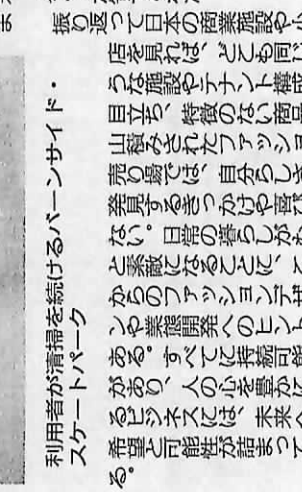 ま
振り返って日本の商業施設や小
店を見れば、どこも同じ
うな施設やテナント構成
目立ち、特徴のない商品
山積みされたファッショ
売り場では、自分らしさ
発見するきっかけや喜び
ない。日常の暮らしがも
と素敵になることに、こ
からのファッションデザ
ンや業態開発へのヒント
ある。すべてに持続可能
があり、人の心を豊かに
るビジネスには、未来へ
希望と可能性が詰まって
る。
利用者が清掃を続けるバーンサイド・
スケートパーク